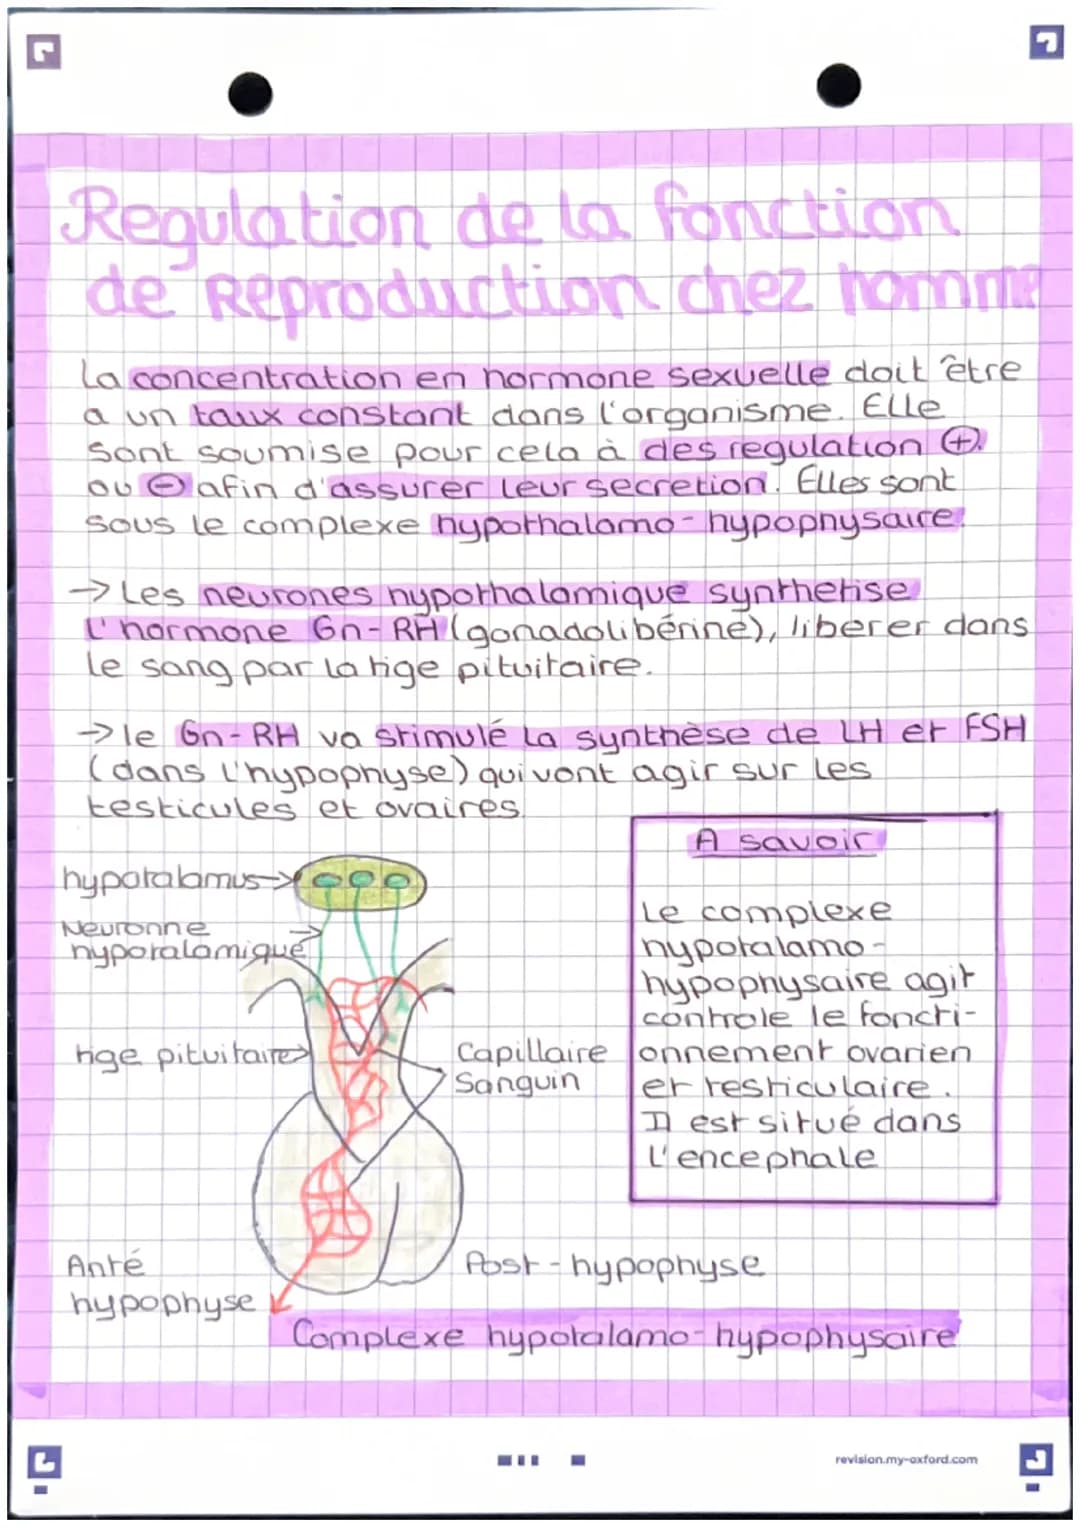 Regulation de la fonction
de Reproduction chez homme
La concentration en hormone sexuelle doit être
a un taux constant dans l'organisme. Elle
sont soumise pour cela à des regulation +.
ou - afin d'assurer leur secretion. Elles sont
sous le complexe hypothalamo-hypophysaire.
→ Les neurones hypothalamique synthetise
l'hormone Gn-RH (gonadolibérine), liberer dans
le sang par la tige pituitaire.
→ le Gn-RH va stimulé la synthèse de LH et FSH
(dans l'hypophyse) qui vont agir sur les
testicules et ovaires.
A savoir
Le complexe
hypotalamo-
hypophysaire agit
controle le foncti-
onnement ovarien
et testiculaire.
Il est situé dans
l'encephale
hypotalamus
Neuronne
hypotalamique
tige pituitaire
Capillaire
Sanguin
Anté
hypophyse
Post-hypophyse
Complexe hypotalamo-hypophysaire
revision.my-oxford.com